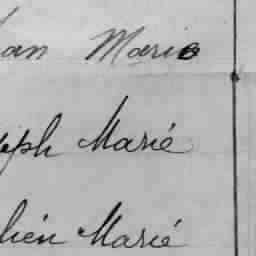 ean Marie
seph Marié
lién Marié